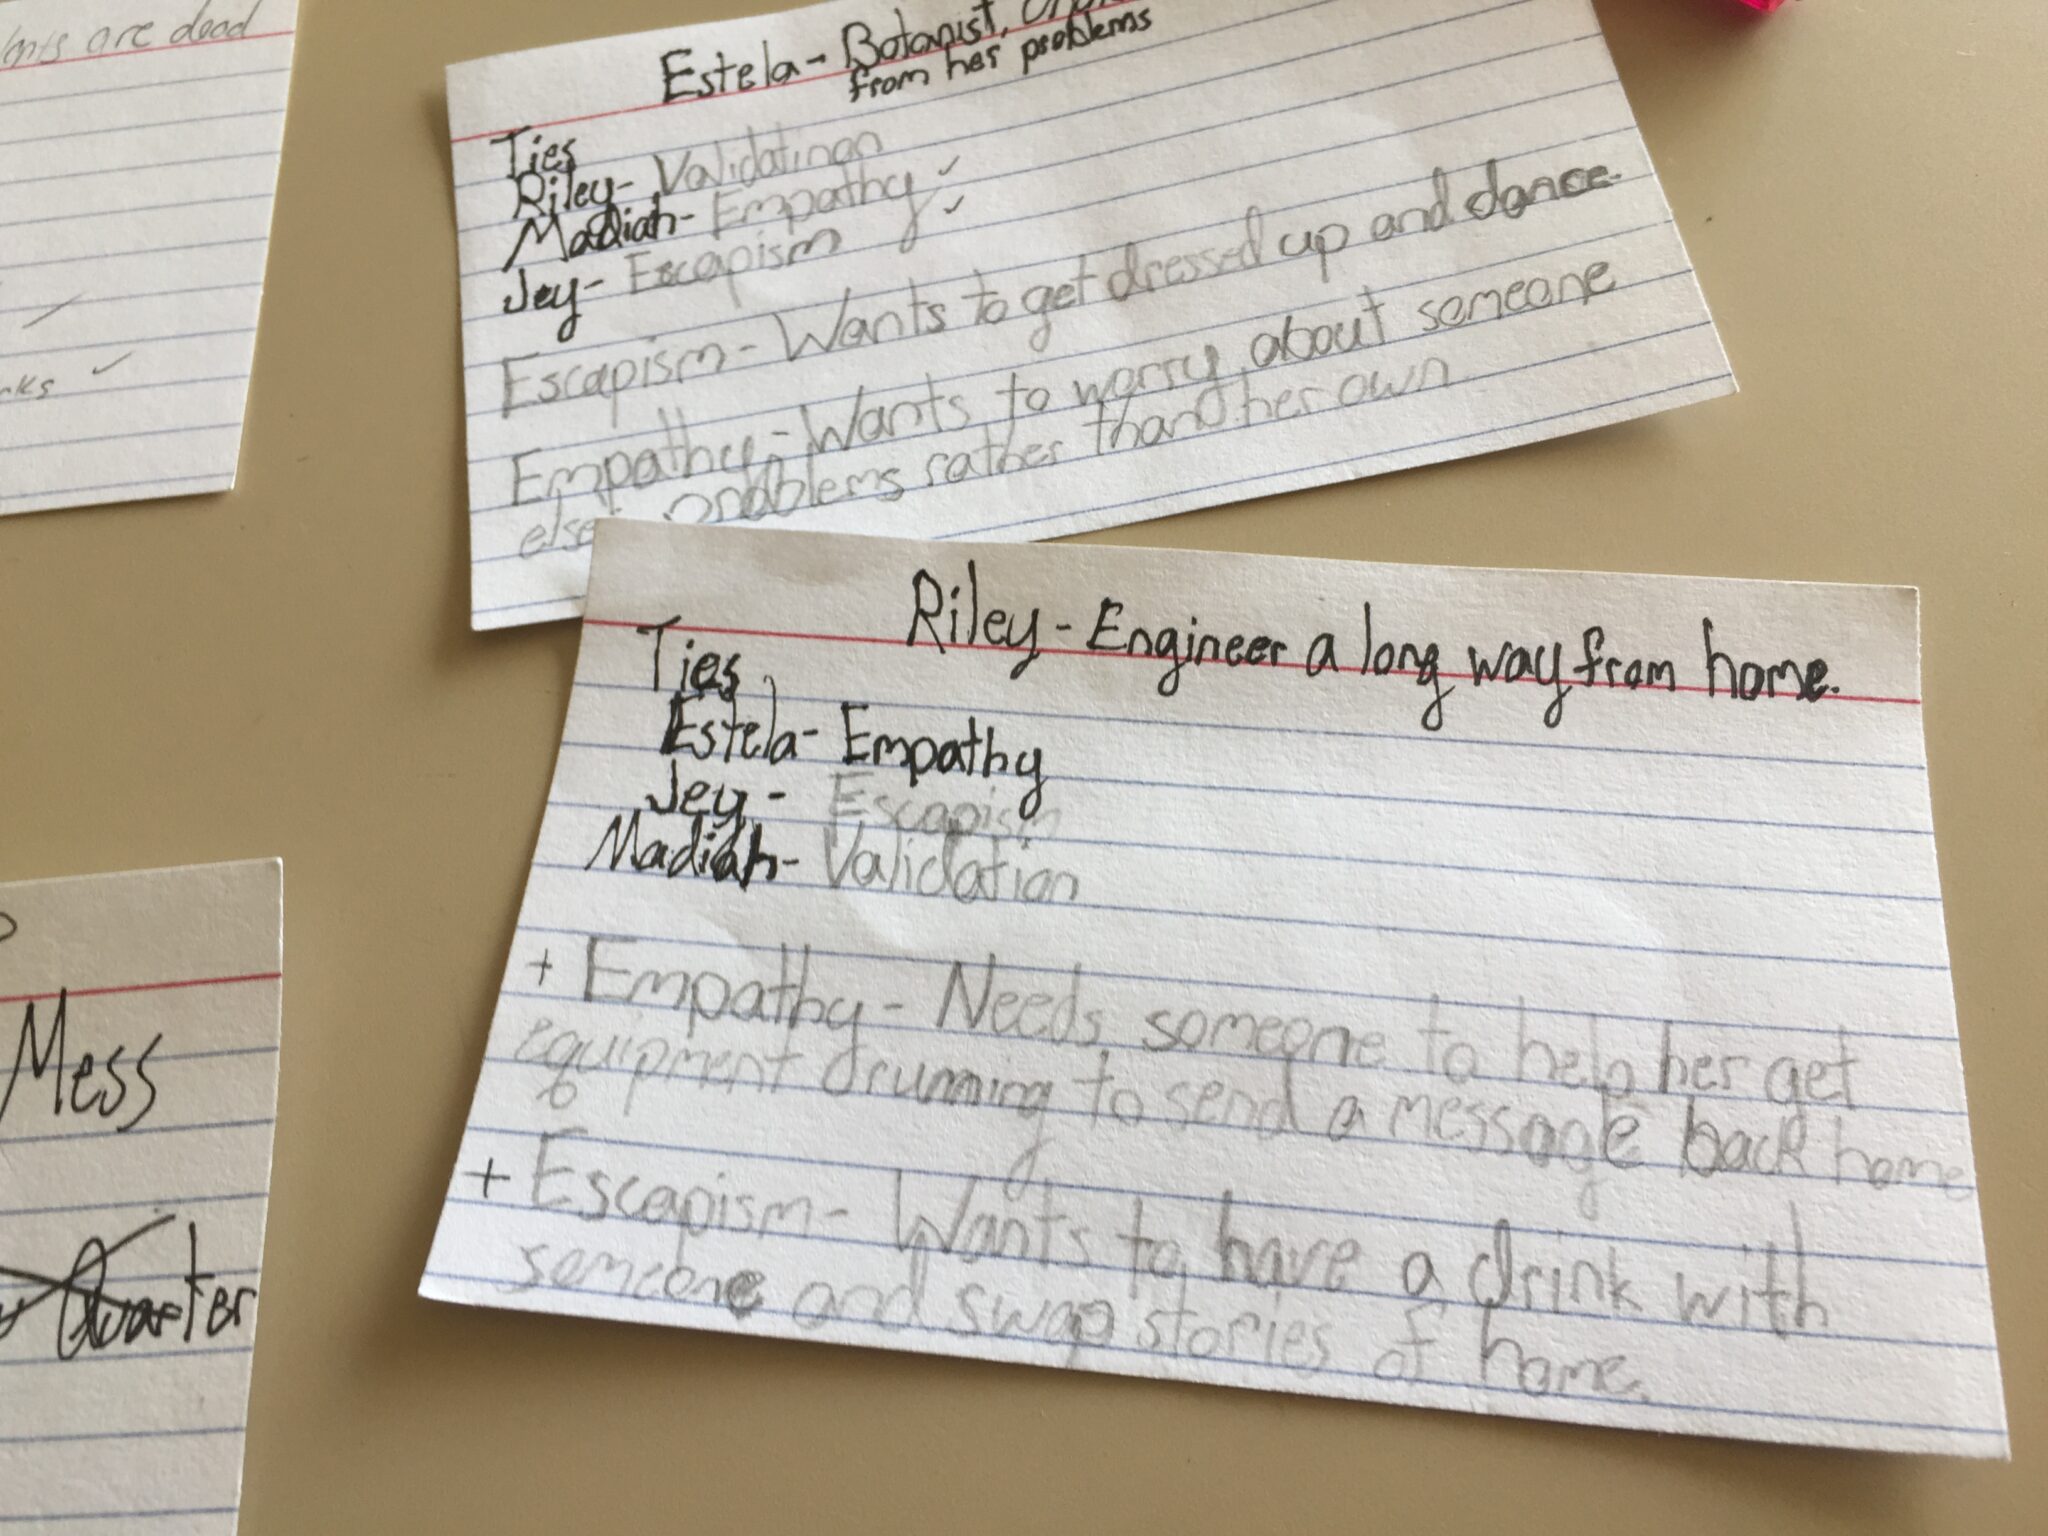 are dead
Estela- Botanist,
from her problems
Ties
Riley- Validatinon
Madiah- Empathy ✓
Jey- Escapism ✓
Escapism- Wants to get dressed up and dance.
Empathy- Wants to worry about someone
else problems rather than her own
Riley- Engineer a long way from home.
Ties
Estela- Empathy
Jey- Escapism
Madiah- Validation
+ Empathy- Needs someone to help her get
equipment drunning to send a message back home
+ Escapism- Wants to have a drink with
someone and swap stories of home.
Mess
Quarter